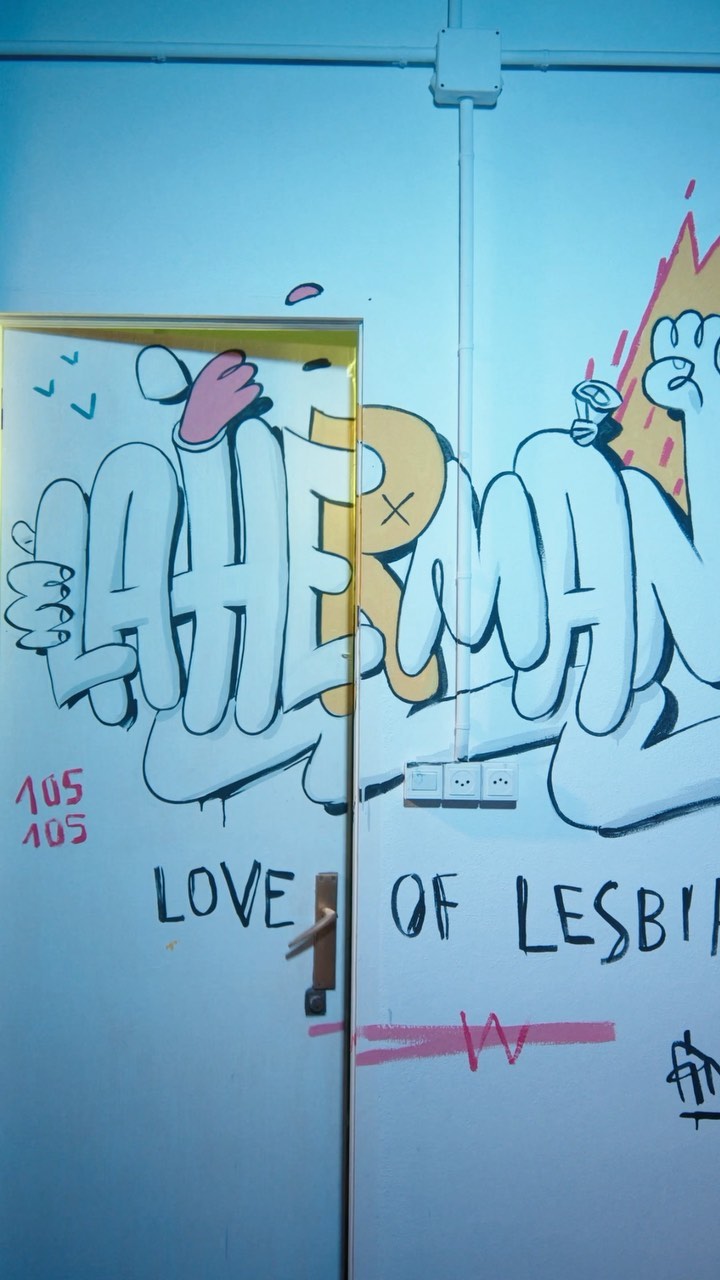 LAHERMAN
105
105
LOVE OF LESBI
W